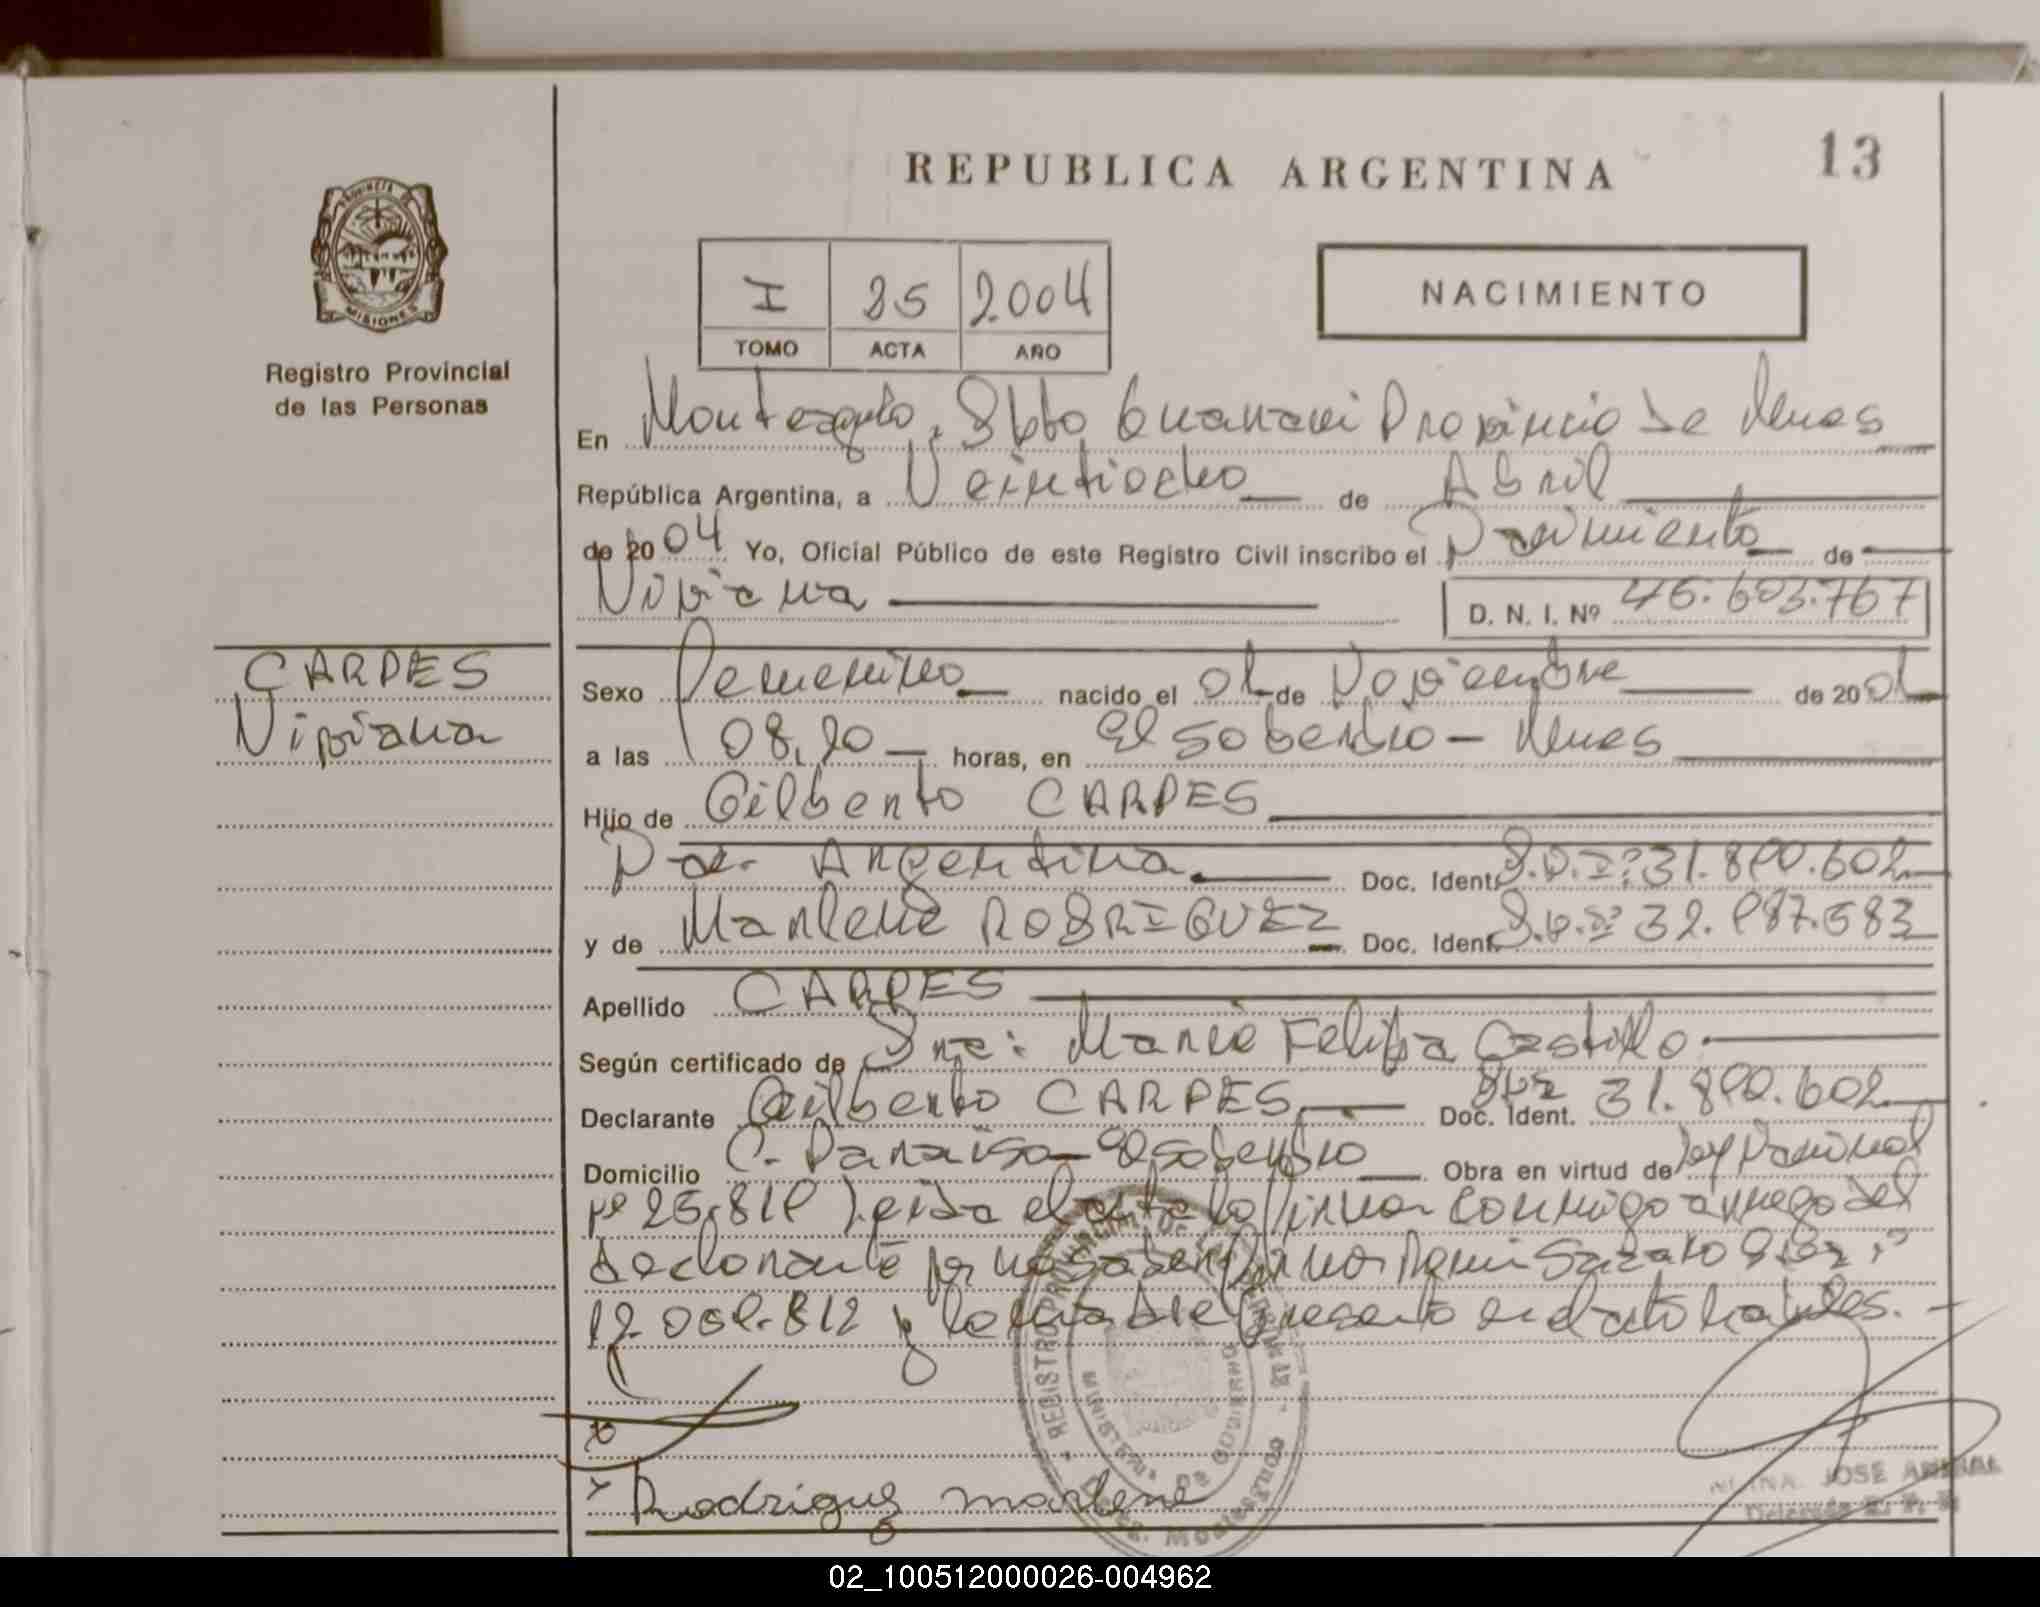 REPUBLICA ARGENTINA
13
PROVINCIA DE
MISIONES
Registro Provincial
de las Personas
I 25 2.004
TOMO ACTA AÑO
NACIMIENTO
En Montecarlo, Dpto Guaraní Provincia de Mnes
República Argentina, a Veintiocho de Abril
de 2004 Yo, Oficial Público de este Registro Civil inscribo el Nacimiento de
Viviana D. N. I. Nº 46.603.767
CARPES
Viviana
Sexo Femenino nacido el 01 de Noviembre de 2001
a las 08,20 horas, en El Soberbio - Mnes
Hijo de Gilberto CARPES
Nac. Argentina Doc. Ident. D.N.I: 31.890.602
y de Marlene RODRIGUEZ Doc. Ident. D.N.I: 32.987.683
Apellido CARPES
Según certificado de Sra: María Felipa Castillo
Declarante Gilberto CARPES Doc. Ident. DNI 31.890.602
Domicilio C. Paraíso - El Soberbio Obra en virtud de Ley Nacional
Nº 25.819 Leída el acta la firman conmigo a ruego del
declarante por no saber firmar
y la madre presente en el acto
x
x Rodriguez marlene
JOSE
Delegado
02_100512000026-004962